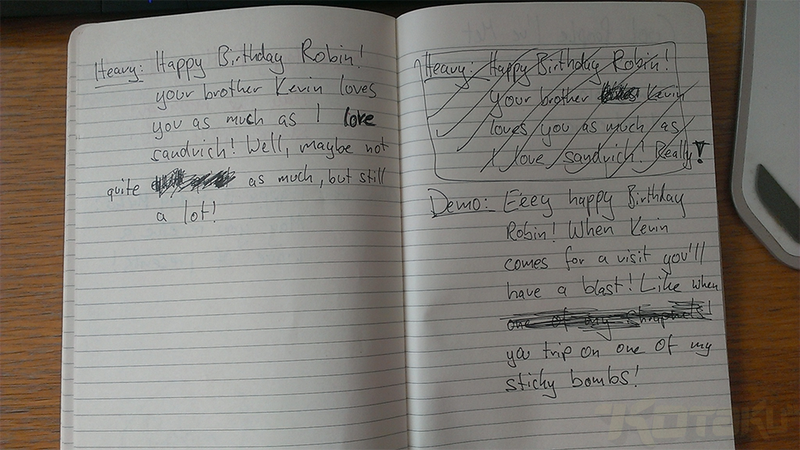 Heavy: Happy Birthday Robin!
your brother Kevin loves
you as much as I love
sandvich! Well, maybe not
quite as much, but still
a lot!
Heavy: Happy Birthday Robin!
your brother Kevin
loves you as much as
I love sandvich! Really!
Demo: Eeey happy Birthday
Robin! When Kevin
comes for a visit you'll
have a blast! Like when
one of my
you trip on one of my
sticky bombs!
KOTAKU